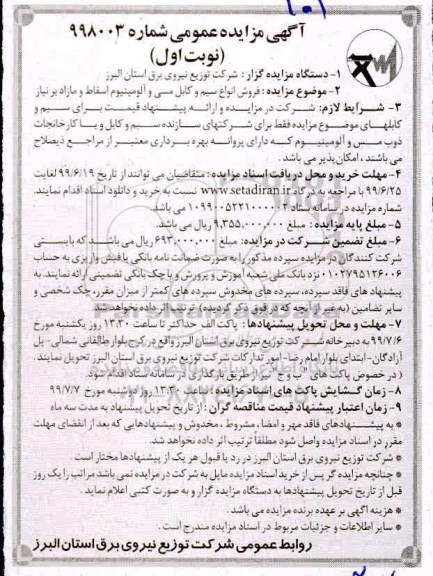 آگهی مزایده عمومی شماره ۹۹۸۰۰۳
(نوبت اول)
۱- دستگاه مزایده گزار : شرکت توزیع نیروی برق استان البرز
۲- موضوع مزایده : فروش انواع سیم و کابل مسی و آلومینیوم اسقاط و مازاد بر نیاز
۳- شرایط لازم: شرکت در مزایده و ارائه پیشنهاد قیمت برای سیم و
کابلهای موضوع مزایده فقط برای شرکتهای سازنده سیم و کابل و یا کارخانجات
ذوب مس و آلومینیوم که دارای پروانه بهره برداری معتبر از مراجع ذیصلاح
می باشند ، امکان پذیر می باشد .
۴- مهلت خرید و محل دریافت اسناد مزایده : متقاضیان می توانند از تاریخ ۹۹/۶/۱۹ لغایت
۹۹/۶/۲۵ با مراجعه به درگاه www.setadiran.ir نسبت به خرید و دانلود اسناد اقدام نمایند.
شماره مزایده در سامانه ستاد می باشد.
۵- مبلغ پایه مزایده : مبلغ ۹,۳۵۵,۰۰۰,۰۰۰ ریال می باشد.
۶- مبلغ تضمین شرکت در مزایده: مبلغ ۶۹۳,۰۰۰,۰۰۰ ریال می باشند که بایستی
شرکت کنندگان در مزایده سپرده مذکور را به صورت ضمانت نامه بانکی یا فیش واریزی به حساب
۰۱۰۲۷۹۵۱۲۶۰۰۶ نزد بانک ملی شعبه آموزش و پرورش و یا چک بانکی تضمینی ارائه نمایند. به
پیشنهاد های فاقد سپرده، سپرده های مخدوش سپرده های کمتر از میزان مقرر، چک شخصی و
سایر تضامین (به غیر از آنچه که در فوق ذکر گردیده) ترتیب اثر داده نخواهد شد.
۷- مهلت و محل تحویل پیشنهادها : پاکت الف حداکثر تا ساعت ۱۳:۳۰ روز یکشنبه مورخ
۹۹/۷/۶ به دبیرخانه شرکت توزیع نیروی برق استان البرز واقع در کرج بلوار طالقانی شمالی- پل
آزادگان- ابتدای بلوار امام رضا- امور تدارکات شرکت توزیع نیروی برق استان البرز تحویل نمایند .
( در خصوص پاکت های ب و ج نیز از طریق بارگذاری در سامانه ستاد اقدام شود.)
۸- زمان گشایش پاکت های اسناد مزایده : ساعت ۱۳:۳۰ روز دوشنبه مورخ ۹۹/۷/۷
۹- زمان اعتبار پیشنهاد قیمت مناقصه گران : از تاریخ تحویل پیشنهاد به مدت سه ماه
* به پیشنهادهای فاقد مهر و امضا، مشروط ، مخدوش و پیشنهادهایی که بعد از انقضای مهلت
مقرر در اسناد مزایده واصل شود مطلقاً ترتیب اثر داده نخواهد شد.
* شرکت توزیع نیروی برق استان البرز در رد یا قبول هر یک از پیشنهادها مختار است .
* چنانچه مزایده گر پس از خرید اسناد مزایده مایل به شرکت در مزایده نمی باشد مراتب را یک روز
قبل از تاریخ تحویل پیشنهادها به دستگاه مزایده گزار و به صورت کتبی اعلام نماید .
* هزینه آگهی بر عهده برنده مزایده می باشد .
* سایر اطلاعات و جزئیات مربوط در اسناد مزایده مندرج است .
روابط عمومی شرکت توزیع نیروی برق استان البرز